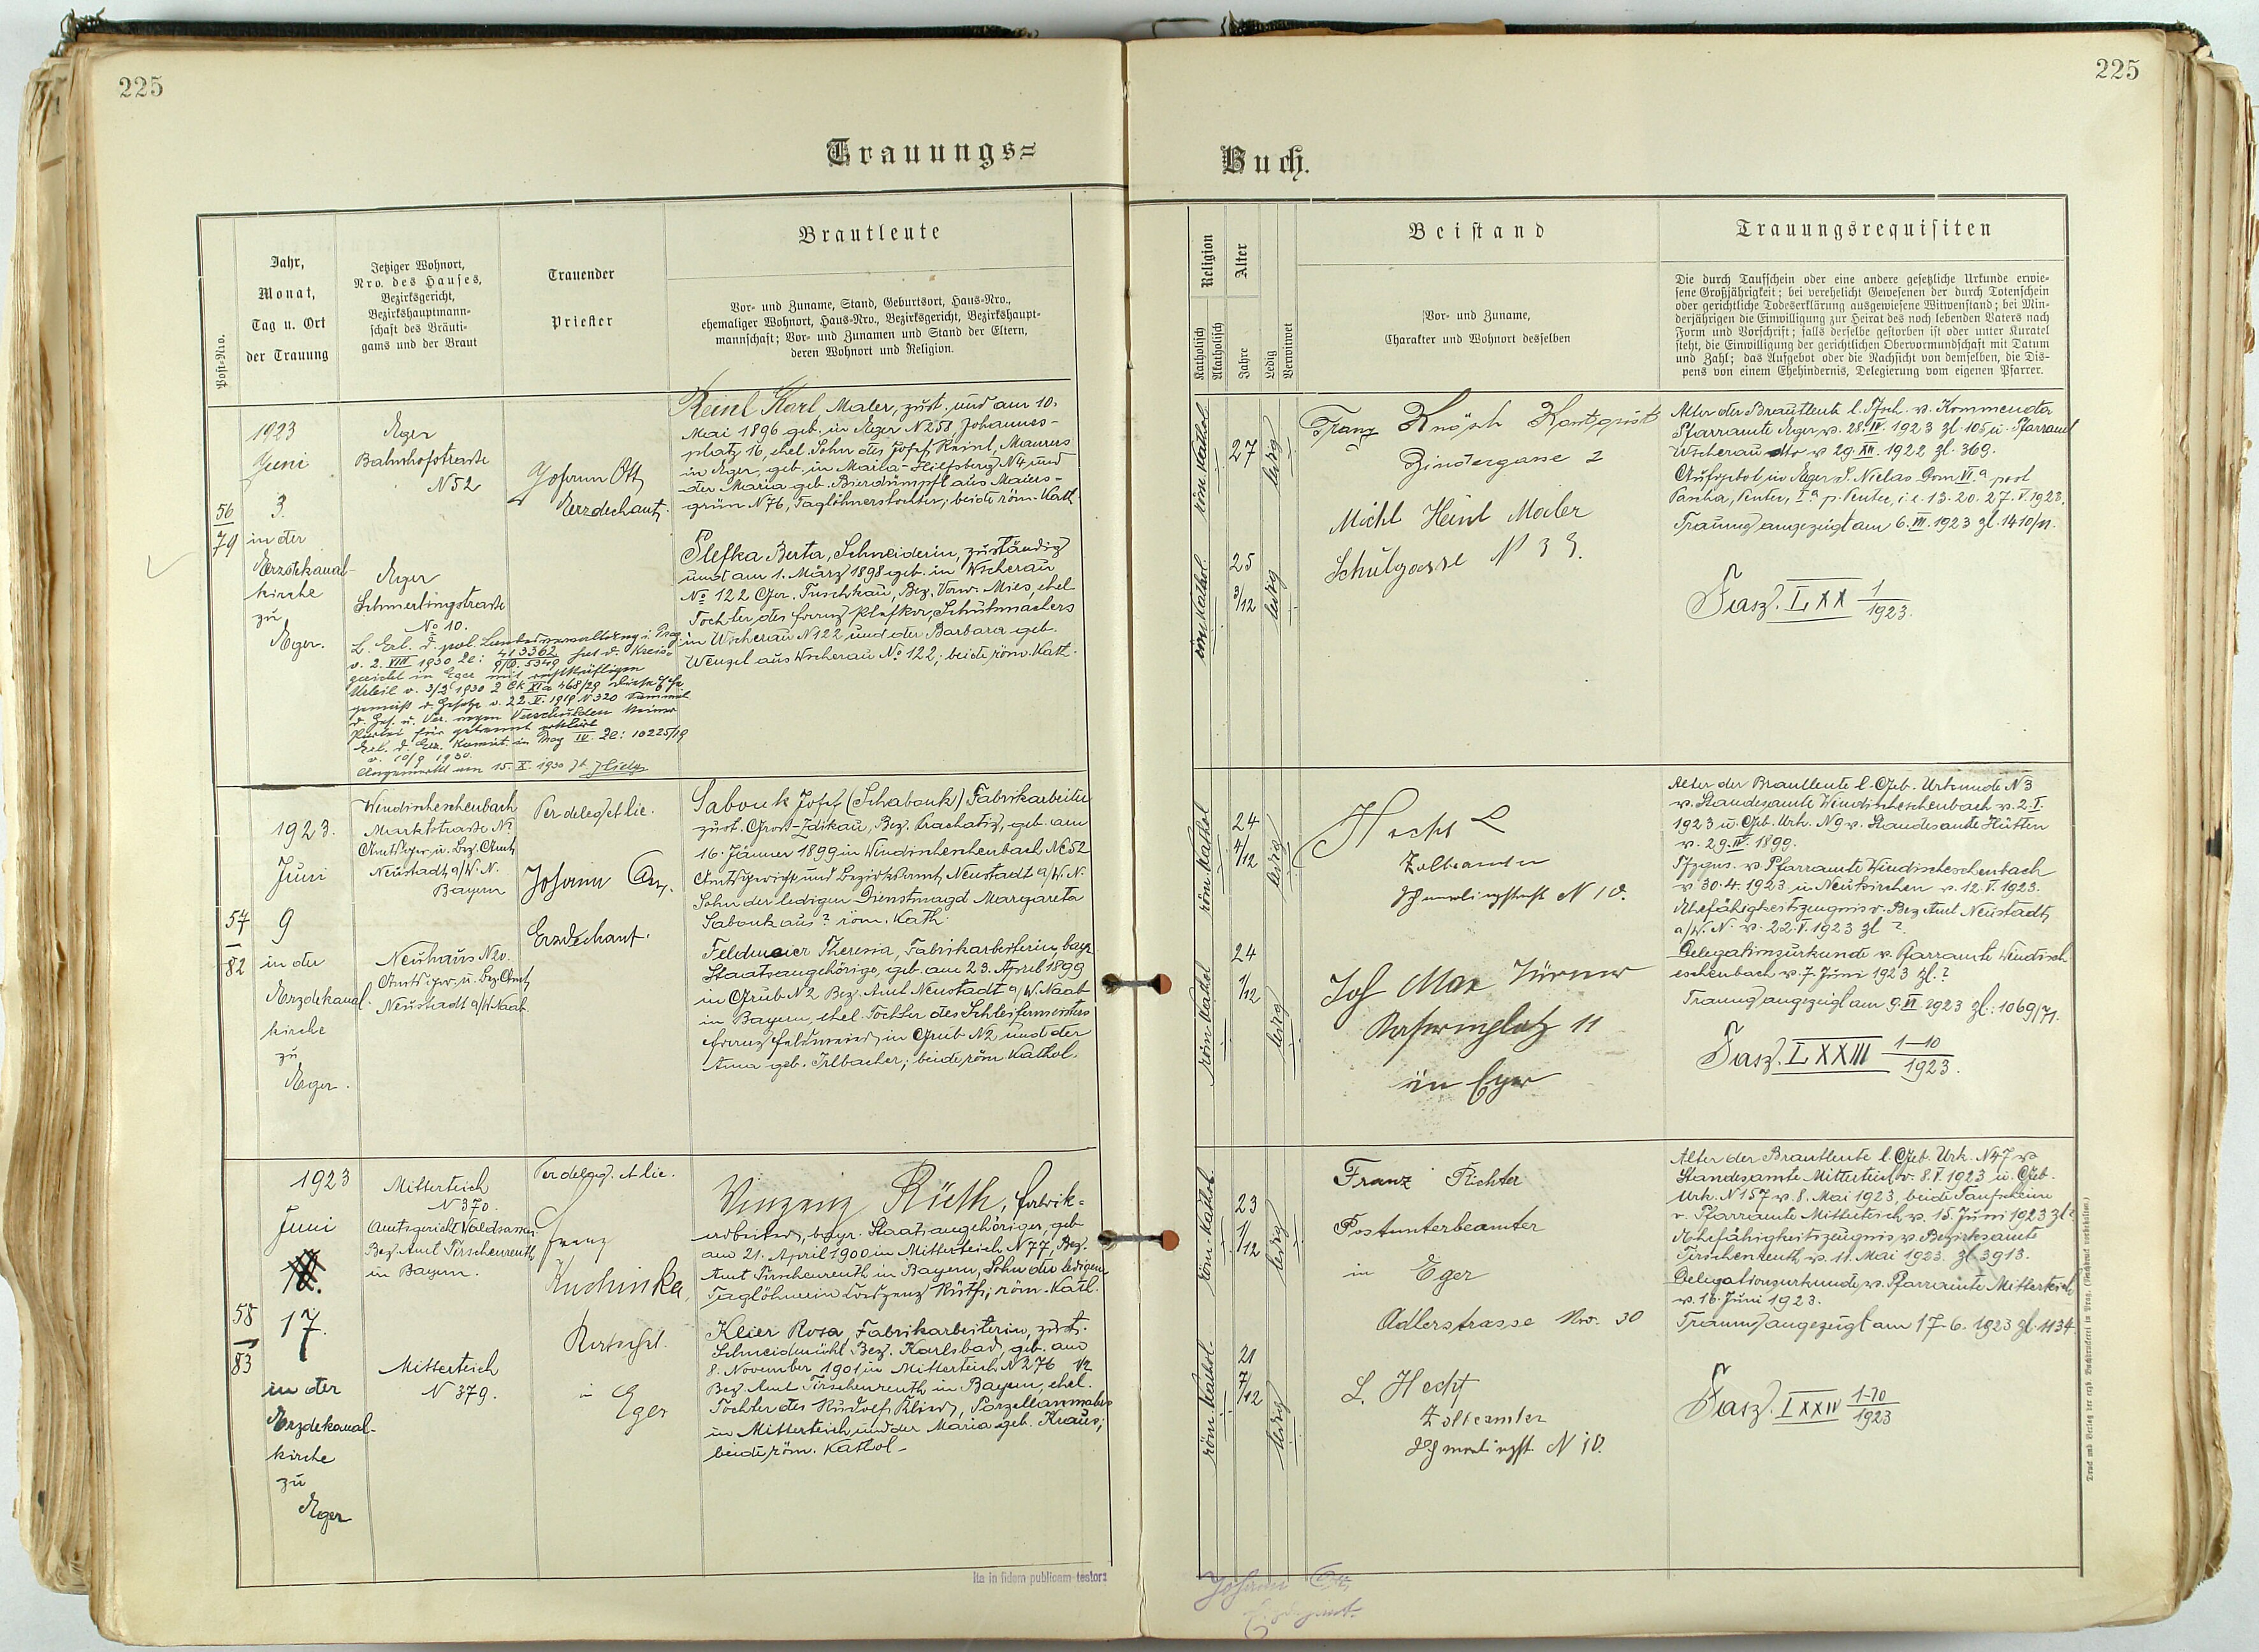 225
225
Trauungs=
Buch.
Post-Nro.
Jahr,
Monat,
Tag u. Ort
der Trauung
Jetziger Wohnort,
Nro. des Hauses,
Bezirksgericht,
Bezirkshauptmann-
schaft des Bräuti-
gams und der Braut
Trauender
Priester
Brautleute
Vor- und Zuname, Stand, Geburtsort, Haus-Nro.,
ehemaliger Wohnort, Haus-Nro., Bezirksgericht, Bezirkshaupt-
mannschaft; Vor- und Zunamen und Stand der Eltern,
deren Wohnort und Religion.
Religion
Katholisch
Akatholisch
Alter
Jahre
Ledig
Verwitwet
Beistand
Vor- und Zuname,
Charakter und Wohnort desselben
Trauungsrequisiten
Die durch Taufschein oder eine andere gesetzliche Urkunde erwie-
sene Großjährigkeit; bei verehelicht Gewesenen der durch Totenschein
oder gerichtliche Todeserklärung ausgewiesene Witwenstand; bei Min-
derjährigen die Einwilligung zur Heirat des noch lebenden Vaters nach
Form und Vorschrift; falls derselbe gestorben ist oder unter Kuratel
steht, die Einwilligung der gerichtlichen Obervormundschaft mit Datum
und Zahl; das Aufgebot oder die Nachsicht von demselben, die Dis-
pens von einem Ehehindernis, Delegierung vom eigenen Pfarrer.
56
79
1923
Juni
3.
in der
Erzdekanal-
kirche
zu
Eger.
Eger
Bahnhofstraße
N 52
Eger
Schmerlingstraße
No 10.
v. 2. VIII 1930 Zl: 413362
Urteil v. 3/3 1930
gemäß d. Gesetze v. 22. V. 1919 N 320
v. 10/9 1930.
Angemerkt am 15. X. 1930
Johann Ott
Erzdechant.
Reinl Karl, Maler, zust. und am 10.
Mai 1896 geb. in Eger N 258 Johannes-
platz 16, ehel. Sohn des Josef Reinl, Maurers
in Eger, geb. in Maria-Hilfsberg N 4 und
der Maria geb. Bierdümpfl aus Maiers-
grün N 76, Taglöhnerstochter; beide röm. Kath.
Plefka Berta, Schneiderin, zuständig
und am 1. März 1898 geb. in Wscherau
No 122 Ger. Tuschkau, Bez. Verw. Mies, ehel.
Tochter des Franz Plefka, Schuhmachers
in Wscherau N 122 und der Barbara geb.
Wenzel aus Wscherau No 122; beide röm. Kath.
röm. Kathol.
27
ledig
röm. Kathol.
25
3/12
ledig
Franz
Zindergasse 2
Michl Heinl Maler
Schulgasse N 33.
Alter der Brautleute l. Tfsch. v. Kommenda
Pfarramte Eger v. 28. IV. 1923 Zl. 105 u. Pfarramt
Wscherau dto v. 29. XII. 1922 Zl. 369.
Pascha, Penter, I.a p. Penter, i. e. 13. 20. 27. V. 1923.
Trauung angezeigt am 6. VI. 1923 Zl. 1410/
Fasz. LXX 1/1923.
57
82
1923.
Juni
9
in der
Erzdekanal-
kirche
zu
Eger.
Windischeschenbach
Marktstraße No
Amtsger. u. Bez. Amt
Neustadt a/W. N.
Bayern
Neuhaus N 20.
Amtsger. u. Bez. Amt
Neustadt a/W. Naab.
Per deleg. et lic.
Johann Ott,
Erzdechant.
Sabouk Josef (Schabouk) Fabrikarbeiter
zust. Gross-Zdikau, Bez. Prachatitz, geb. am
16. Jänner 1899 in Windischeschenbach N 52
Amtsgericht und Bezirksamt Neustadt a/W. N.
Sohn der ledigen Dienstmagd Margareta
Sabouk aus ? röm. Kath.
Feldmeier Theresia, Fabrikarbeiterin, bayr.
Staatsangehörige, geb. am 23. April 1899
in Grub N 2 Bez. Amt Neustadt a/W. Naab
in Bayern, ehel. Tochter des Schleifermeisters
Franz Feldmeier, in Grub N 2 und der
Anna geb. Irlbacher; beide röm. Kathol.
röm. Kathol.
24
4/12
ledig
röm. Kathol.
24
1/12
ledig
Hecht L
Zollbeamter
N 10.
Jos Max Türmer
11
in Eger
Alter der Brautleute l. Geb. Urkunde N 3
v. Standesamte Windischeschenbach v. 2. I.
1923 u. Geb. Urk. N 9 v. Standesamte Hütten
v. 29. IV. 1899.
v. Pfarramte Windischeschenbach
v. 30. 4. 1923 u. Neukirchen v. 12. V. 1923.
Ehefähigkeitszeugnis v. Bez. Amt Neustadt
a/W. N. v. 22. V. 1923 Zl ?
Delegationsurkunde v. Pfarramte Windisch
eschenbach v. 7. Juni 1923 Zl. ?
Trauung angezeigt am 9. VI 1923 Zl: 1069/71.
Fasz. LXXIII 1-10/1923.
58
83
1923
Juni
17.
in der
Erzdekanal-
kirche
zu
Eger
Mitterteich
N 370.
Amtsgericht Waldsassen
Bez. Amt Tirschenreuth
in Bayern.
Mitterteich
N 379.
Per deleg. et lic.
Franz
Kuchinka,
in
Eger
Vinzenz Rüth, Fabrik-
arbeiter, bayr. Staatsangehöriger, geb.
am 21. April 1900 in Mitterteich N 77, Bez.
Amt Tirschenreuth in Bayern, Sohn der ledigen
Taglöhnerin Kreszenz Rüth; röm. Kath.
Klier Rosa, Fabrikarbeiterin, zust.
Schneidmühl Bez. Karlsbad, geb. am
8. November 1901 in Mitterteich N 276 1/2
Bez. Amt Tirschenreuth in Bayern, ehel.
Tochter des Rudolf Klier, Porzellanmalers
in Mitterteich und der Maria geb. Kraus;
beide röm. Kathol.
röm. Kathol.
23
1/12
ledig
röm. Kathol.
21
7/12
ledig
Franz Richter
Postunterbeamter
in Eger
Adlerstrasse Nro. 30
L. Hecht
Zollbeamter
N 10.
Alter der Brautleute l. Geb. Urk. N 47 v.
Standesamte Mitterteich v. 8. V. 1923 u. Geb.
Urk. N 157 v. 8. Mai 1923, beide Taufscheine
v. Pfarramte Mitterteich v. 15. Juni 1923 Zl
Ehefähigkeitszeugnis v. Bezirksamte
Tirschenreuth v. 11. Mai 1923. Zl 3913.
Delegationsurkunde v. Pfarramte Mitterteich
v. 16. Juni 1923.
Trauung angezeigt am 17. 6. 1923 Zl. 1134.
Fasz. LXXIV 1-10/1923
Druck und Verlag der erzb. Buchdruckerei in Prag. (Nachdruck vorbehalten.)
ita in fidem publicam testor:
Johann Ott